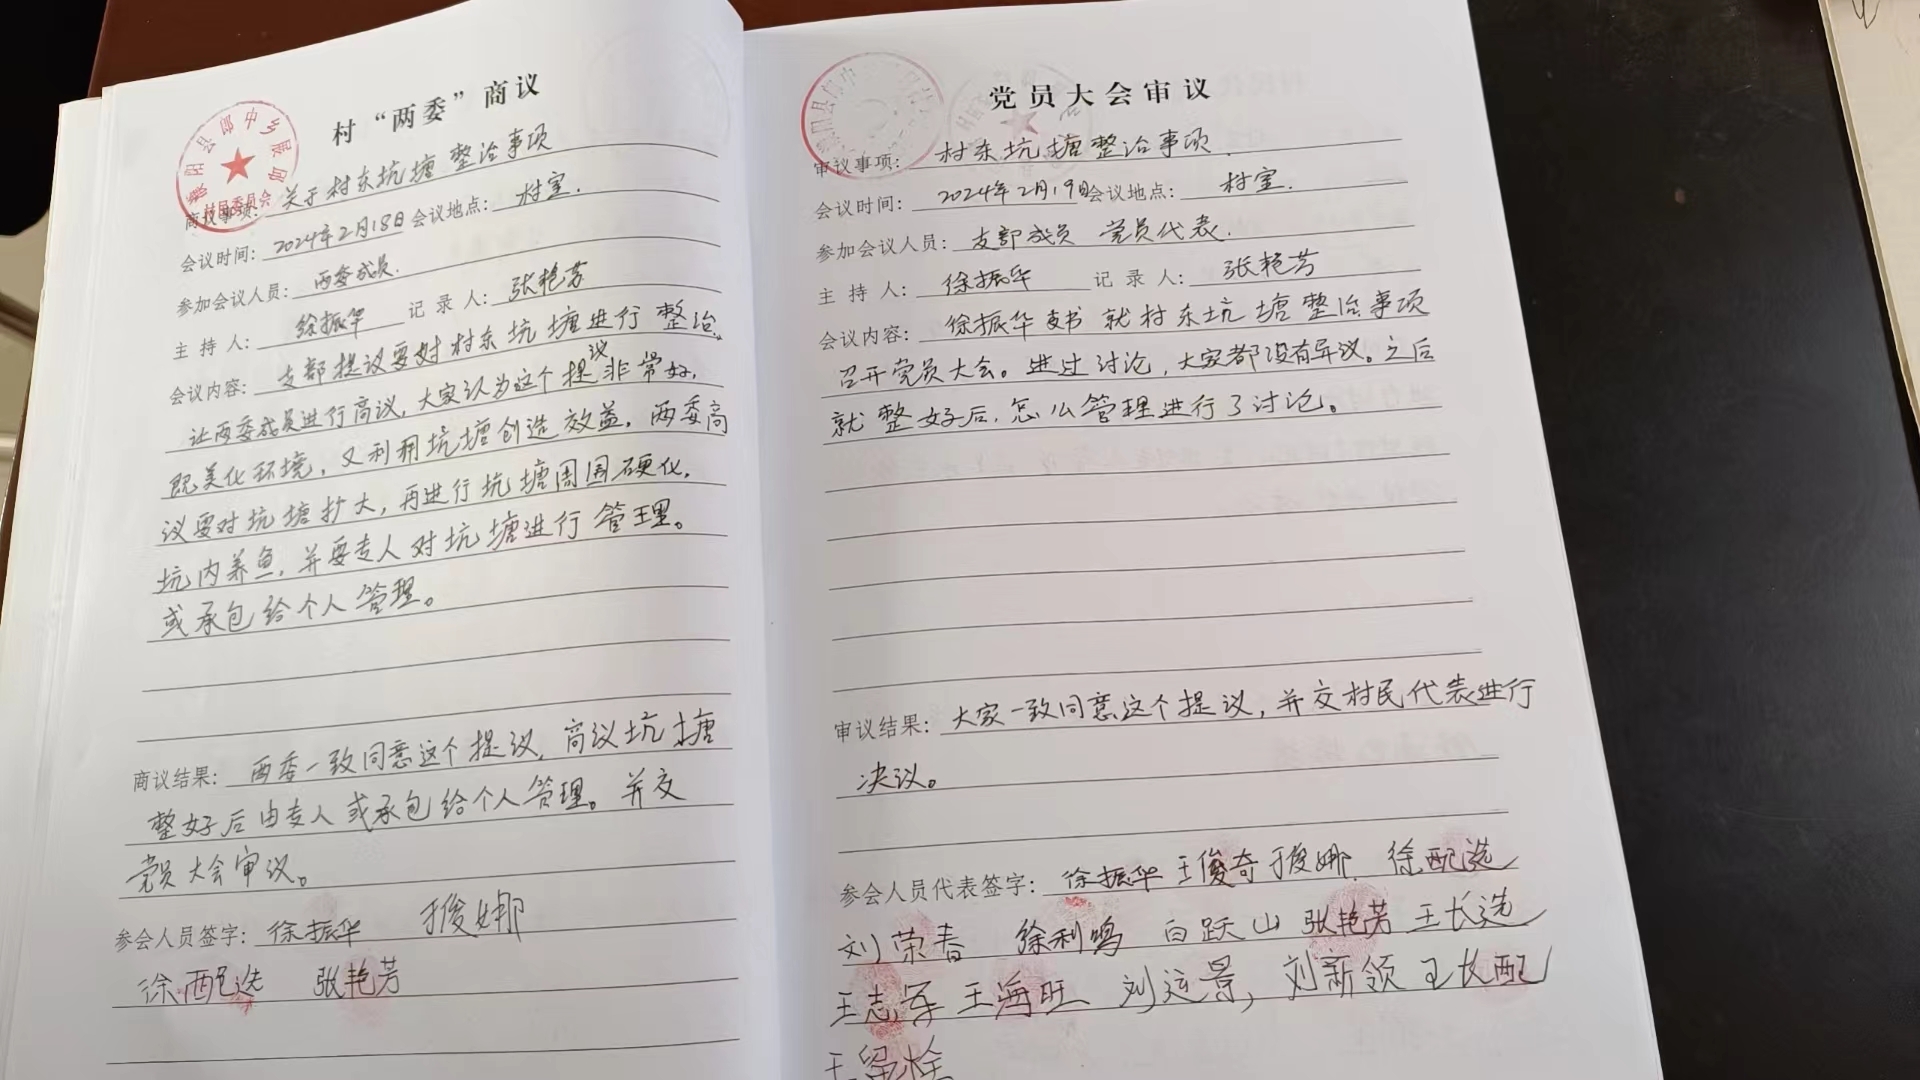 村“两委”商议
商议事项：关于村东坑塘整治事项
会议时间：2024年2月18日 会议地点：村室.
参加会议人员：两委成员.
主持人：徐振华 记录人：张艳芳
会议内容：支部提议要对村东坑塘进行整治。
让两委成员进行商议，大家认为这个提议非常好，
既美化环境，又利用坑塘创造效益，两委商
议要对坑塘扩大，再进行坑塘周围硬化，
坑内养鱼，并要专人对坑塘进行管理。
或承包给个人管理。
商议结果：两委一致同意这个提议，商议坑塘
整好后由专人或承包给个人管理。并交
党员大会审议。
参会人员签字：徐振华 于俊娜
徐配选 张艳芳
村民委员会
党员大会审议
审议事项：村东坑塘整治事项.
会议时间：2024年2月19日 会议地点：村室.
参加会议人员：支部成员 党员代表.
主持人：徐振华 记录人：张艳芳
会议内容：徐振华支书就村东坑塘整治事项
召开党员大会。进过讨论，大家都没有异议。之后
就整好后，怎么管理进行了讨论。
审议结果：大家一致同意这个提议，并交村民代表进行
决议。
参会人员代表签字：徐振华 王俊奇 于俊娜 徐配选
刘荣春 徐利鸣 白跃山 张艳芳 王长选
王志军 王海旺 刘运景，刘新领 王长配
王留栓